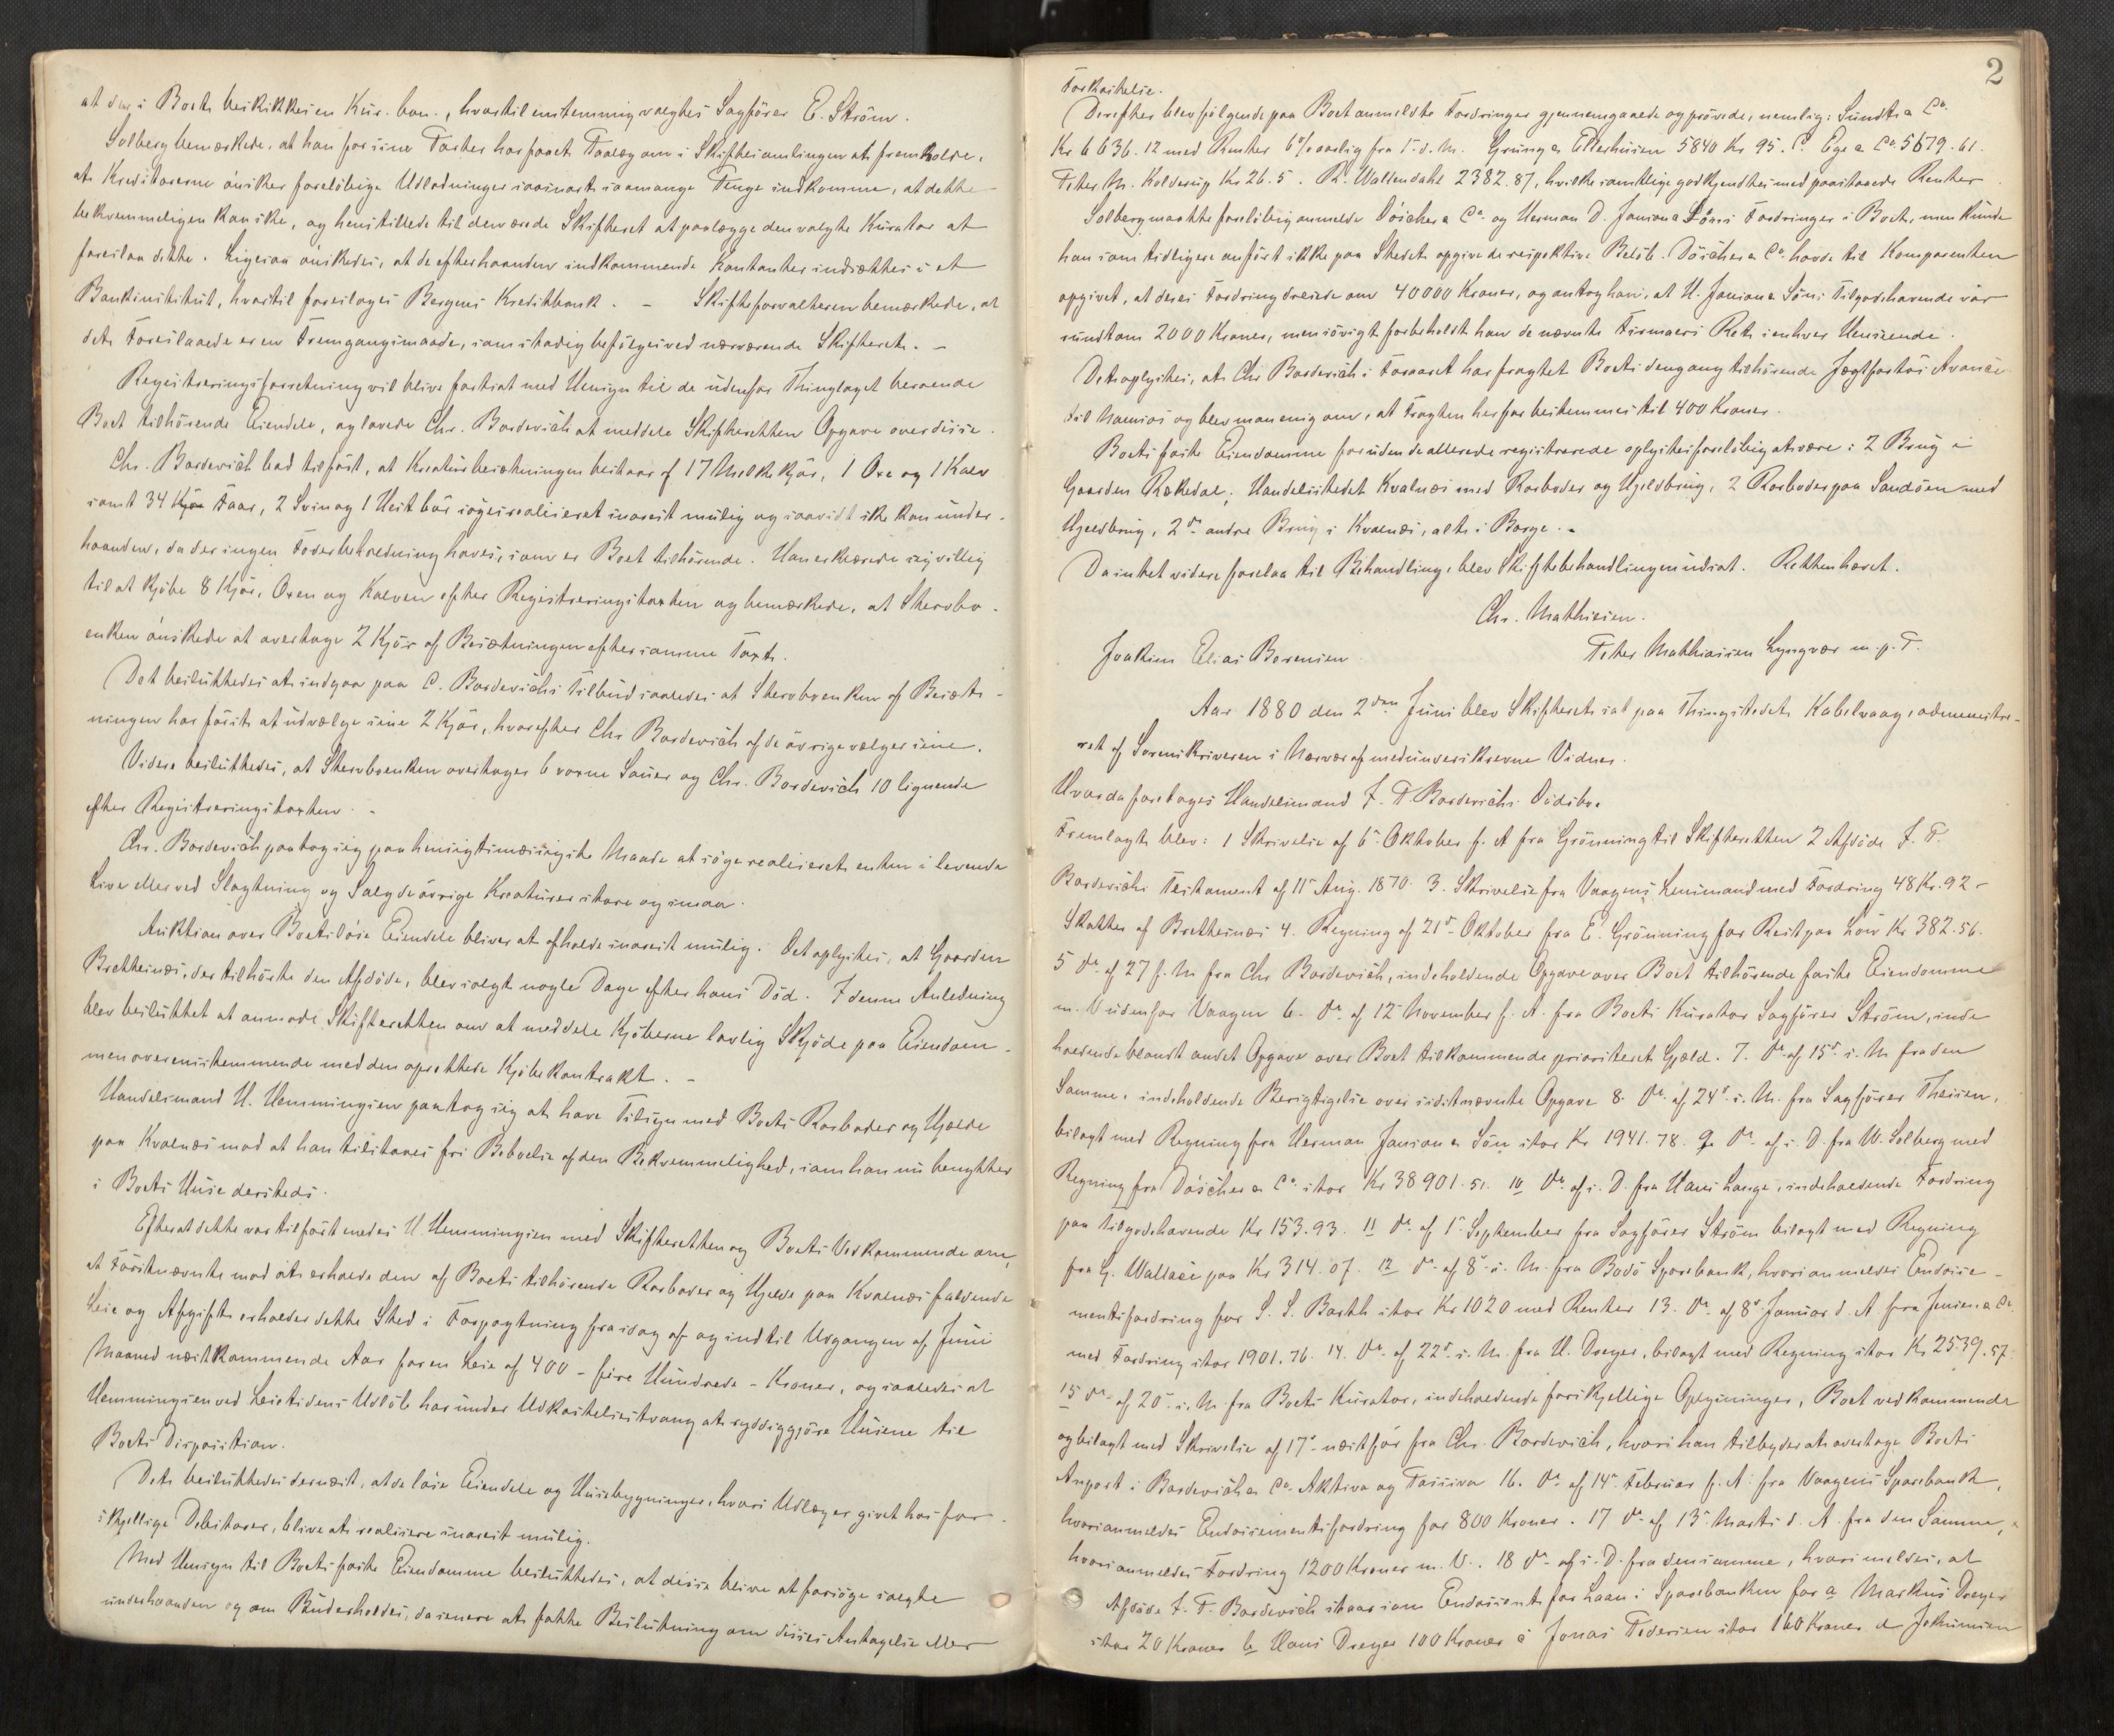 at der i Boet beskikkes en Kur. bon., hvortil enstemmig valgtes Sagfører E. Strøm.
Solberg bemærkede, at han for sine Parter har faaet Paalæg om i Skiftesamlingen at fremholde,
at Kreditorerne ønsker foreløbige Udlodninger saasnart saamange Penge indkomme, at dette
bekvemmeligen kan ske, og henstillede til den ærede Skifteret at paalægge den valgte Kurator at
foreslaa dette. Ligesaa ønskedes, at de efterhaanden indkommende Kontanter indsættes i et
Bankinstitut, hvortil foresloges Bergens Kreditbank. – Skifteforvalteren bemærkede, at
det Foreslaaede er en Fremgangsmaade, som stadig befølges ved nærværende Skifteret. –
Registreringsforretning vil blive fortsat med Hensyn til de udenfor Thinglaget beroende
Boet tilhørende Eiendele, og lovede Chr. Bordevich at meddele Skifteretten Opgave over disse.
Chr. Bordevich bad tilført, at Kreaturbesætningen bestaar af 17 Melkekjør, 1 Oxe og 1 Kalv
samt 34 Kjør Faar, 2 Svin og 1 Hest bør søges realiseret snarest mulig og saavidt ske kan under-
haanden, da der ingen Foderbeholdning haves, som er Boet tilhørende. Han erklærede sig villig
til at kjøbe 8 Kjør, Oxen og Kalven efter Registreringstaxten og bemærkede, at Stervbo-
enken ønskede at overtage 2 Kjør af Besætningen efter samme Taxt.
Det besluttedes at indgaa paa C. Bordevichs Tilbud saaledes at Stervboenken af Besæt-
ningen har først at udvælge sine 2 Kjør, hvorefter Chr Bordevich af de øvrige vælger sine.
Videre besluttedes, at Stervboenken overtager 6 voxne Sauer og Chr. Bordevich 10 lignende
efter Registreringstaxten. –
Chr. Bordevich paatog sig paa hensigtsmæssigste Maade at søge realiseret enten i levende
Live eller ved Slagtning og Salg de øvrige Kreaturer store og smaa.
Auktion over Boets løse Eiendele bliver at afholde snarest mulig. Det oplystes, at Gaarden
Brettesnæs, der tilhørte den Afdøde, blev solgt nogle Dage efter hans Død. I denne Anledning
blev besluttet at anmode Skifteretten om at meddele Kjøberne lovlig Skjøde paa Eiendom-
men overensstemmende med den oprettede Kjøbekontrakt. –
Handelsmand H. Hemmingsen paatog sig at have Tilsyn med Boets Rorboder og Hjelde
paa Kvalnæs mod at han tilstaaes fri Beboelse af den Bekvemmelighed, som han nu benytter
i Boets Huse dersteds.
Efter at dette var tilført enedes H. Hemmingsen med Skifteretten og Boets Vedkommende om,
at Førstnævnte mod at erholde den af Boets tilhørende Rorboder og Hjelde paa Kvalnæs faldende
Leie og Afgift erholder dette Sted i Forpagtning fra idag af og indtil Udgangen af Juni
Maaned næstkommende Aar for en Leie af 400 – fire Hundrede – Kroner, og saaledes at
Hemmingsen ved Leietidens Udløb har under Udkastelsestvang at ryddiggjøre Husene til
Boets Disposition.
Det besluttedes dernæst, at de løse Eiendele og Husebygninger, hvori Udlæg er givet hos for-
skjellige Debitorer, blive at realisere snarest mulig.
Med Hensyn til Boets faste Eiendomme besluttedes, at disse blive at forsøge solgte
underhaanden og om Bud erholdes, da senere at fatte Beslutning om disses Antagelse eller
2
Forkastelse.
Derefter blev følgende paa Boet anmeldte Fordringer gjennemgaaede og prøvede, nemlig: Sundt & Co.
Kr 6636.12 med Renter 6 % aarlig fra f. d. M. Grung & Ellerhusen 5840 Kr 95. C. Ege & Co. 5679.61.
Peter M. Kolderup Kr 26.5. R. Wallendahl 2382.87, hvilke samtlige godkjendtes med paastaaede Renter
Solberg maatte foreløbig anmelde Döscher & Co. og Herman D. Janson & Søns Fordringer i Boet, men kunde
han som tidligere anført ikke paa Stedet opgive de respektive Beløb. Döscher & Co. havde til Komparenten
opgivet, at deres Fordring dreiede om 40000 Kroner, og antog han, at H. Janson & Søns Tilgodehavende var
rundtom 2000 Kroner, men iøvrigt forbeholdt han de nævnte Firmaers Ret i enhver Henseende.
Det oplystes, at Chr Bordevich i Foraaret har fragtet Boets dengang tilhørende Jægtfartøi Avance
til Namsos og blev man enig om, at Fragten herfor bestemmes til 400 Kroner.
Boets faste Eiendomme foruden de allerede registrerede oplystes foreløbig at være: 2 Brug i
Gaarden Rækedal, Handelsstedet Kvalnæs med Rorboder og Hjeldbrug, 2 Rorboder paa Sandøen med
Hjeldbrug, 2 do. andre Brug i Kvalnæs, alt i Borge. –
Da intet videre forelaa til Behandling, blev Skiftebehandlingen udsat. Retten hævet.
Chr. Mathiesen.
Joakim Elias Berensen. Peter Mathiassen Lyngvær m. p. P.
Aar 1880 den 2den Juni blev Skifteret sat paa Thingstedet Kabelvaag, administre-
ret af Sorenskriveren i Nærvær af medunderskrevne Vidner.
Hvorda foretoges Handelsmand J. P. Bordevichs Dødsbo.
Fremlagt blev: 1 Skrivelse af 6te Oktober f. A fra Grønning til Skifteretten 2 Afdøde J. P.
Bordevichs Testament af 11te Aug. 1870. 3. Skrivelse fra Vaagens Lensmand med Fordring 48 Kr. 92 –
Skatter af Brettesnæs 4. Regning af 21de Oktober fra E. Grønning for Rest paa Løn Kr 382.56.
5 Do. af 27 f. M fra Chr Bordevich, indeholdende Opgave over Boet tilhørende faste Eiendomme
m. V udenfor Vaagen 6. Do. af 12 November f. A. fra Boets Kurator Sagfører Strøm, inde
holdende blandt andet Opgave over Boet tilkommende prioriteret Gjæld. 7. Do. af 15de s. M fra den
Samme, indeholdende Berigtigelse over sidstnævnte Opgave 8. Do. af 24de s. M. fra Sagfører Thesen,
bilagt med Regning fra Herman Janson & Søn stor Kr 1941.78. 9 Do. af s. D. fra W. Solberg med
Regning fra Döscher & Co. stor Kr 38901.51. 10 Do. af s. D. fra Hans Lange, indeholdende Fordring
paa tilgodehavende Kr 153.93. 11 Do. af 1te September fra Sagfører Strøm bilagt med Regning
fra G. Wallace paa Kr 314.07. 12 Do. af 8de s. M. fra Bodø Sparebank, hvori anmeldes Endosse-
mentsfordring for S. S. Barth stor Kr 1020 med Renter 13. Do. af 8de Januar d. A. fra Jensen & Co.
med Fordring stor 1901.76. 14. Do. af 22de s. M. fra H. Dreyer, bilagt med Regning stor Kr 2539.57.
15 Do. af 20. s. M fra Boets Kurator, indeholdende forskjellige Oplysninger, Boet vedkommende
og bilagt med Skrivelse af 17de næstfør fra Chr. Bordevich, hvori han tilbyder at overtage Boets
Anpart i Bordevich & Co. Aktiva og Passiva 16. Do. af 14de Februar f. A. fra Vaagens Sparebank,
hvori anmeldes Endossementsfordring for 800 Kroner. 17 Do. af 13de Marts d. A. fra den Samme,
hvori anmeldes Fordring 1200 Kroner m. V.. 18 Do. af s. D. fra densamme, hvori meldes, at
Afdøde J. P. Bordevich staar som Endossent for Laan i Sparebanken for a Markus Dreyer
stor 20 Kroner b Hans Dreyer 100 Kroner c Jonas Pedersen stor 160 Kroner d